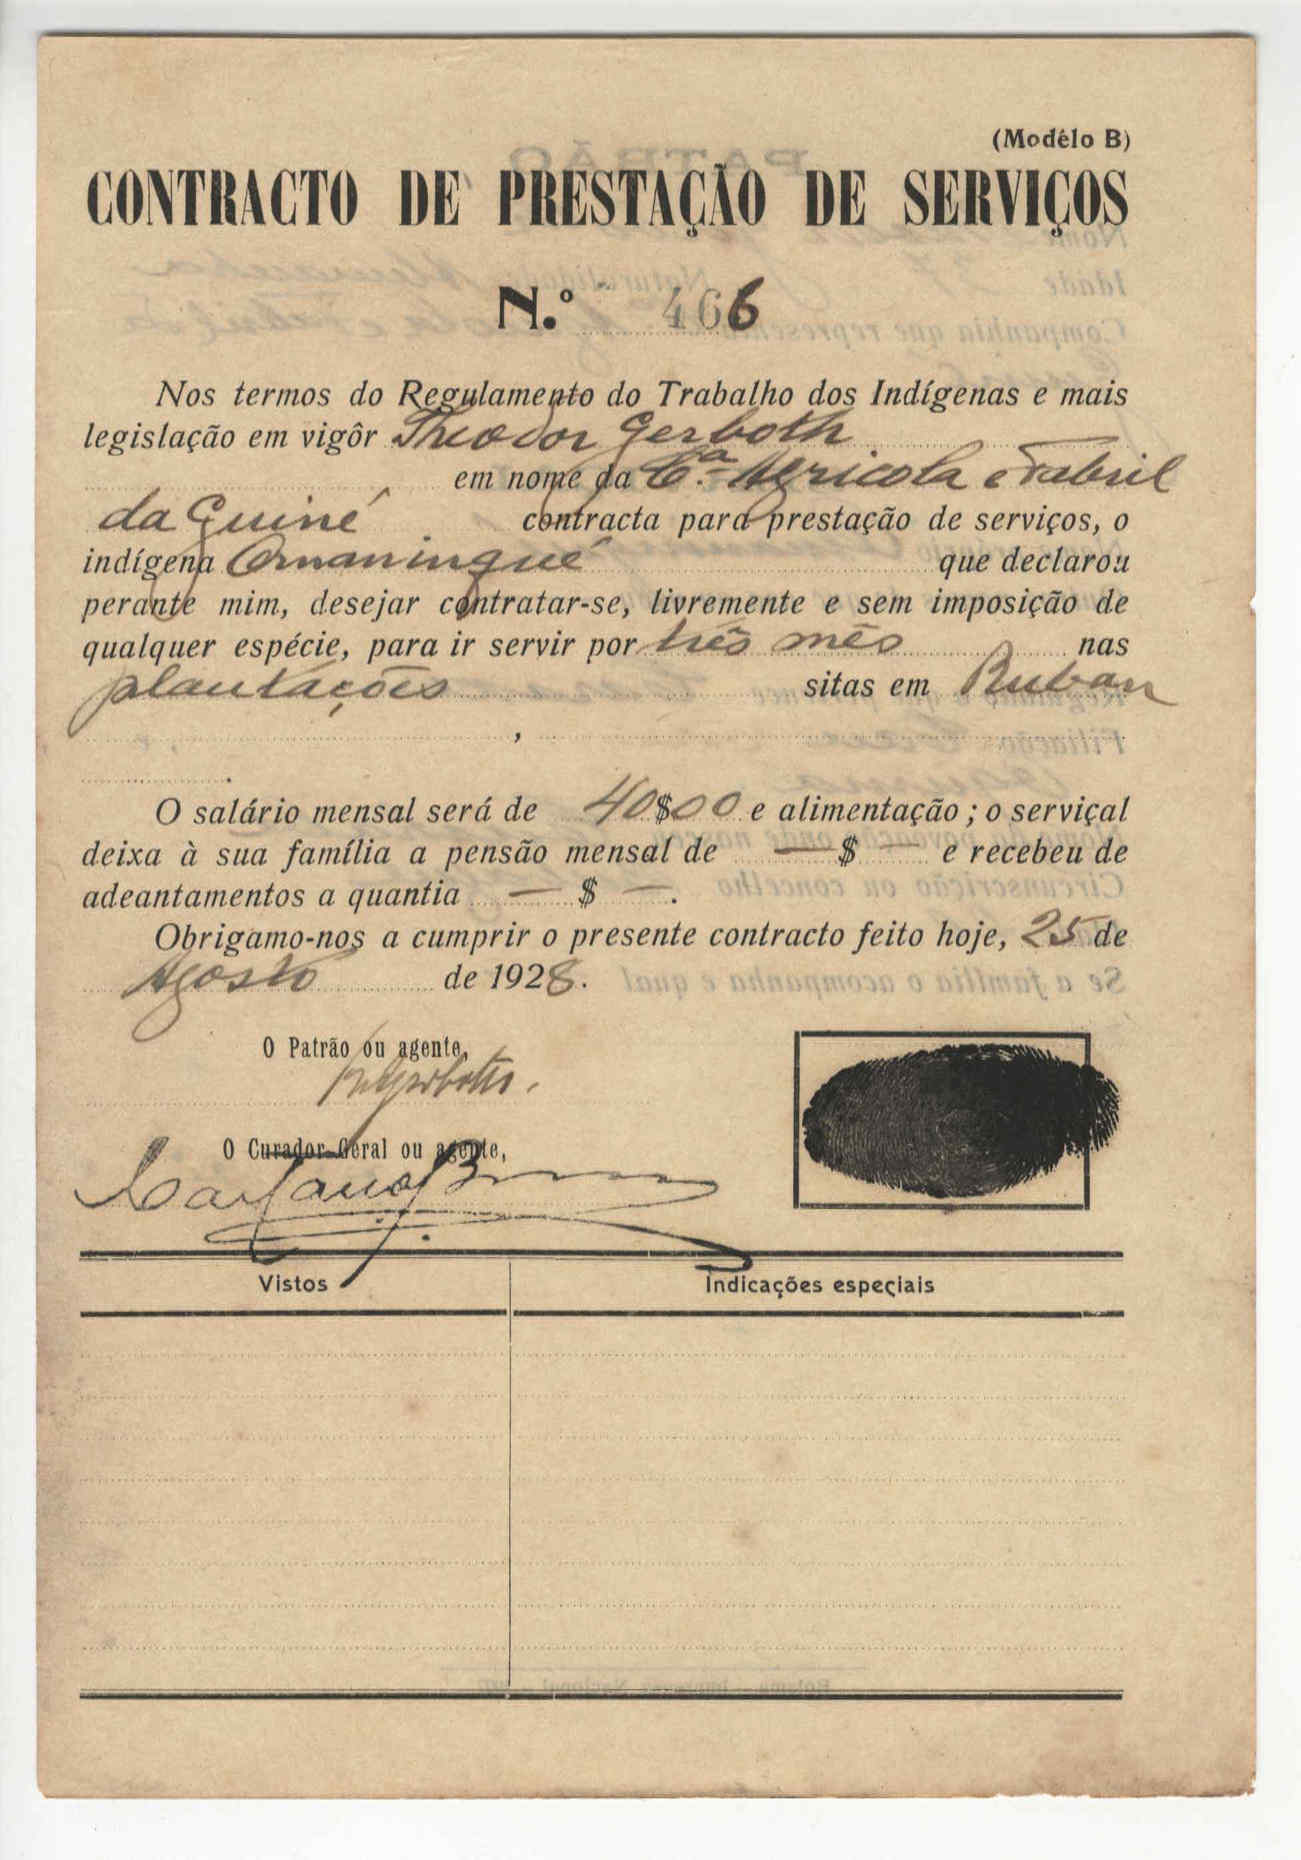 (Modêlo B)
CONTRACTO DE PRESTAÇÃO DE SERVIÇOS
N.º 466
Nos termos do Regulamento do Trabalho dos Indígenas e mais
legislação em vigôr Theodor Gerboth
em nome da C.ª Agricola e Fabril
da Guiné contracta para prestação de serviços, o
indígena que declarou
perante mim, desejar contratar-se, livremente e sem imposição de
qualquer espécie, para ir servir por três mês nas
plantações sitas em Ruban
,
.
O salário mensal será de 40$00 e alimentação; o serviçal
deixa à sua família a pensão mensal de — $ — e recebeu de
adeantamentos a quantia — $ — .
Obrigamo-nos a cumprir o presente contracto feito hoje, 25 de
Agosto de 1928.
O Patrão ou agente,
O Curador Geral ou agente,
Vistos Indicações especiais